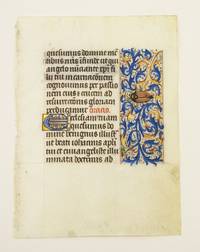 quesumus domine me(n)
tibus n(ost)ris i(n)funde ut qui
angelo nu(n)ciante xp(ist)i fi
lii tui incarnacionem
cognouimus per passio
nem eius et crucem ad
resurrectionis gloriam
perducamur Oracio.
Ecclesiam tuam
quesumus do
mine benignus illus
tra ut beati iohannis apos
toli tui et euangeliste illu
minata doctrinis ad